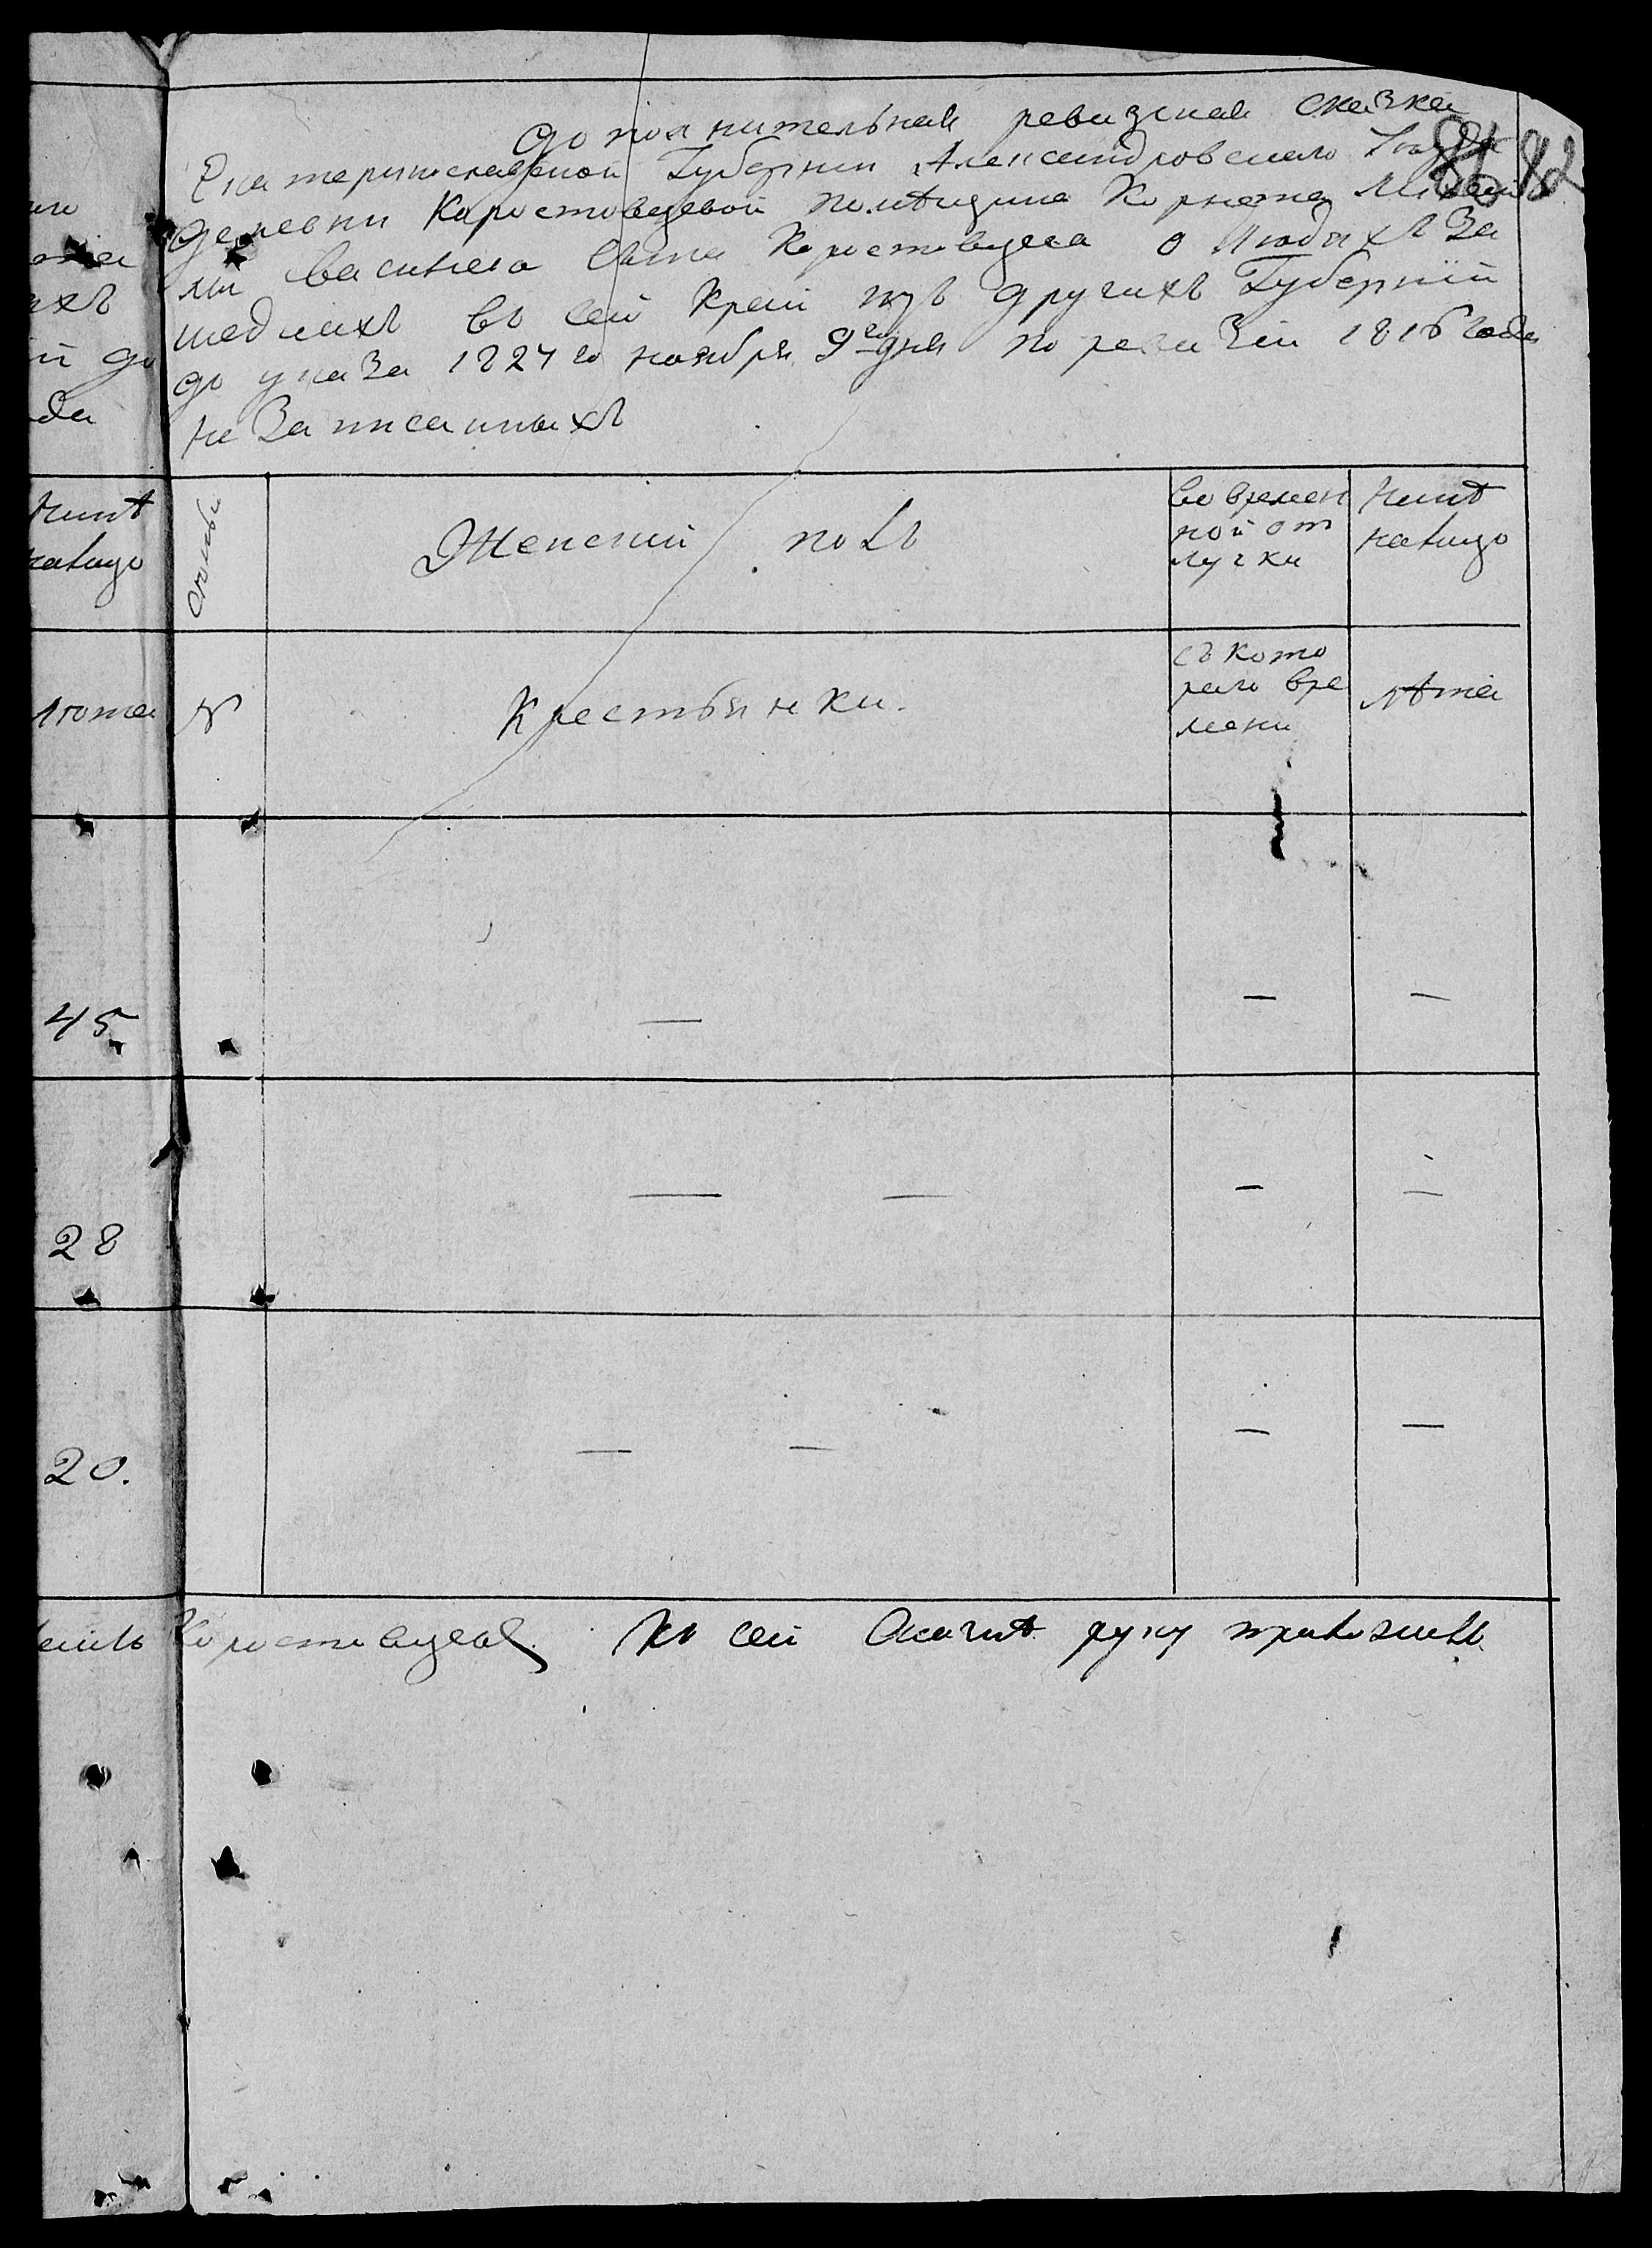 дополнительная ревизская сказка
Екатеринославской Губернии Александровскаго Уезда
деревни Коростовцевой помѣщика Корнета Михай
лы васильева Сына Коростовцева о Людяхъ За
шедшихъ въ сей Край изъ другихъ Губерній
до указа 1827го ноября 9го дня по ревизіи 1816 года
не Записанныхъ
86 82
ихъ
й до
да
нынѣ
налицо
Семьи
Женский полъ
во времен
ной от
лучки
Нынѣ
налицо
лѣта
№
Крестьянки.
съ кото
раго вре
мени
лѣта
45
—
—
—
28
—
—
—
—
20.
—
—
—
—
Коростовцевъ Къ сей Скаскѣ руку приложилъ